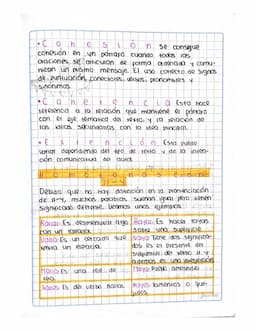 • C o h e s i ó n  Se consigue
cohesión en un párrafo cuando todas las
oraciones se articulan de forma ordenada y comu-
nican un mismo mensaje. El uso correcto de signos
de puntuación, conectores, verbos, pronombres y
sinónimos
• C o h e r e n c i a  Esta hace
referencia a la relación que mantiene el párrafo
con el eje temático del texto, y la relación de
las ideas secundarias con la idea principal.
• E x t e n c i ó n  Esta puede
variar dependiendo del tipo de texto y de la inten-
ción comunicativa del autor.
Debido que no hay distinción en la pronunciación
de ll-y, muchas palabras suenan igual pero tienen
significado diferente. Leamos unos ejemplos
Rallar: Es desmenuzar algo
con un rallador.
Rayar: Es hacer rayas
sobre una superficie
Valla: Es un cercado que
limita un espacio.
Vaya: Tiene dos significa-
dos es el presente en
subjuntivo del verbo ir y
además es una interjección
Malla: Es una red de
Maya: Pueblo amerindio
Halles: Es del verbo hallar.